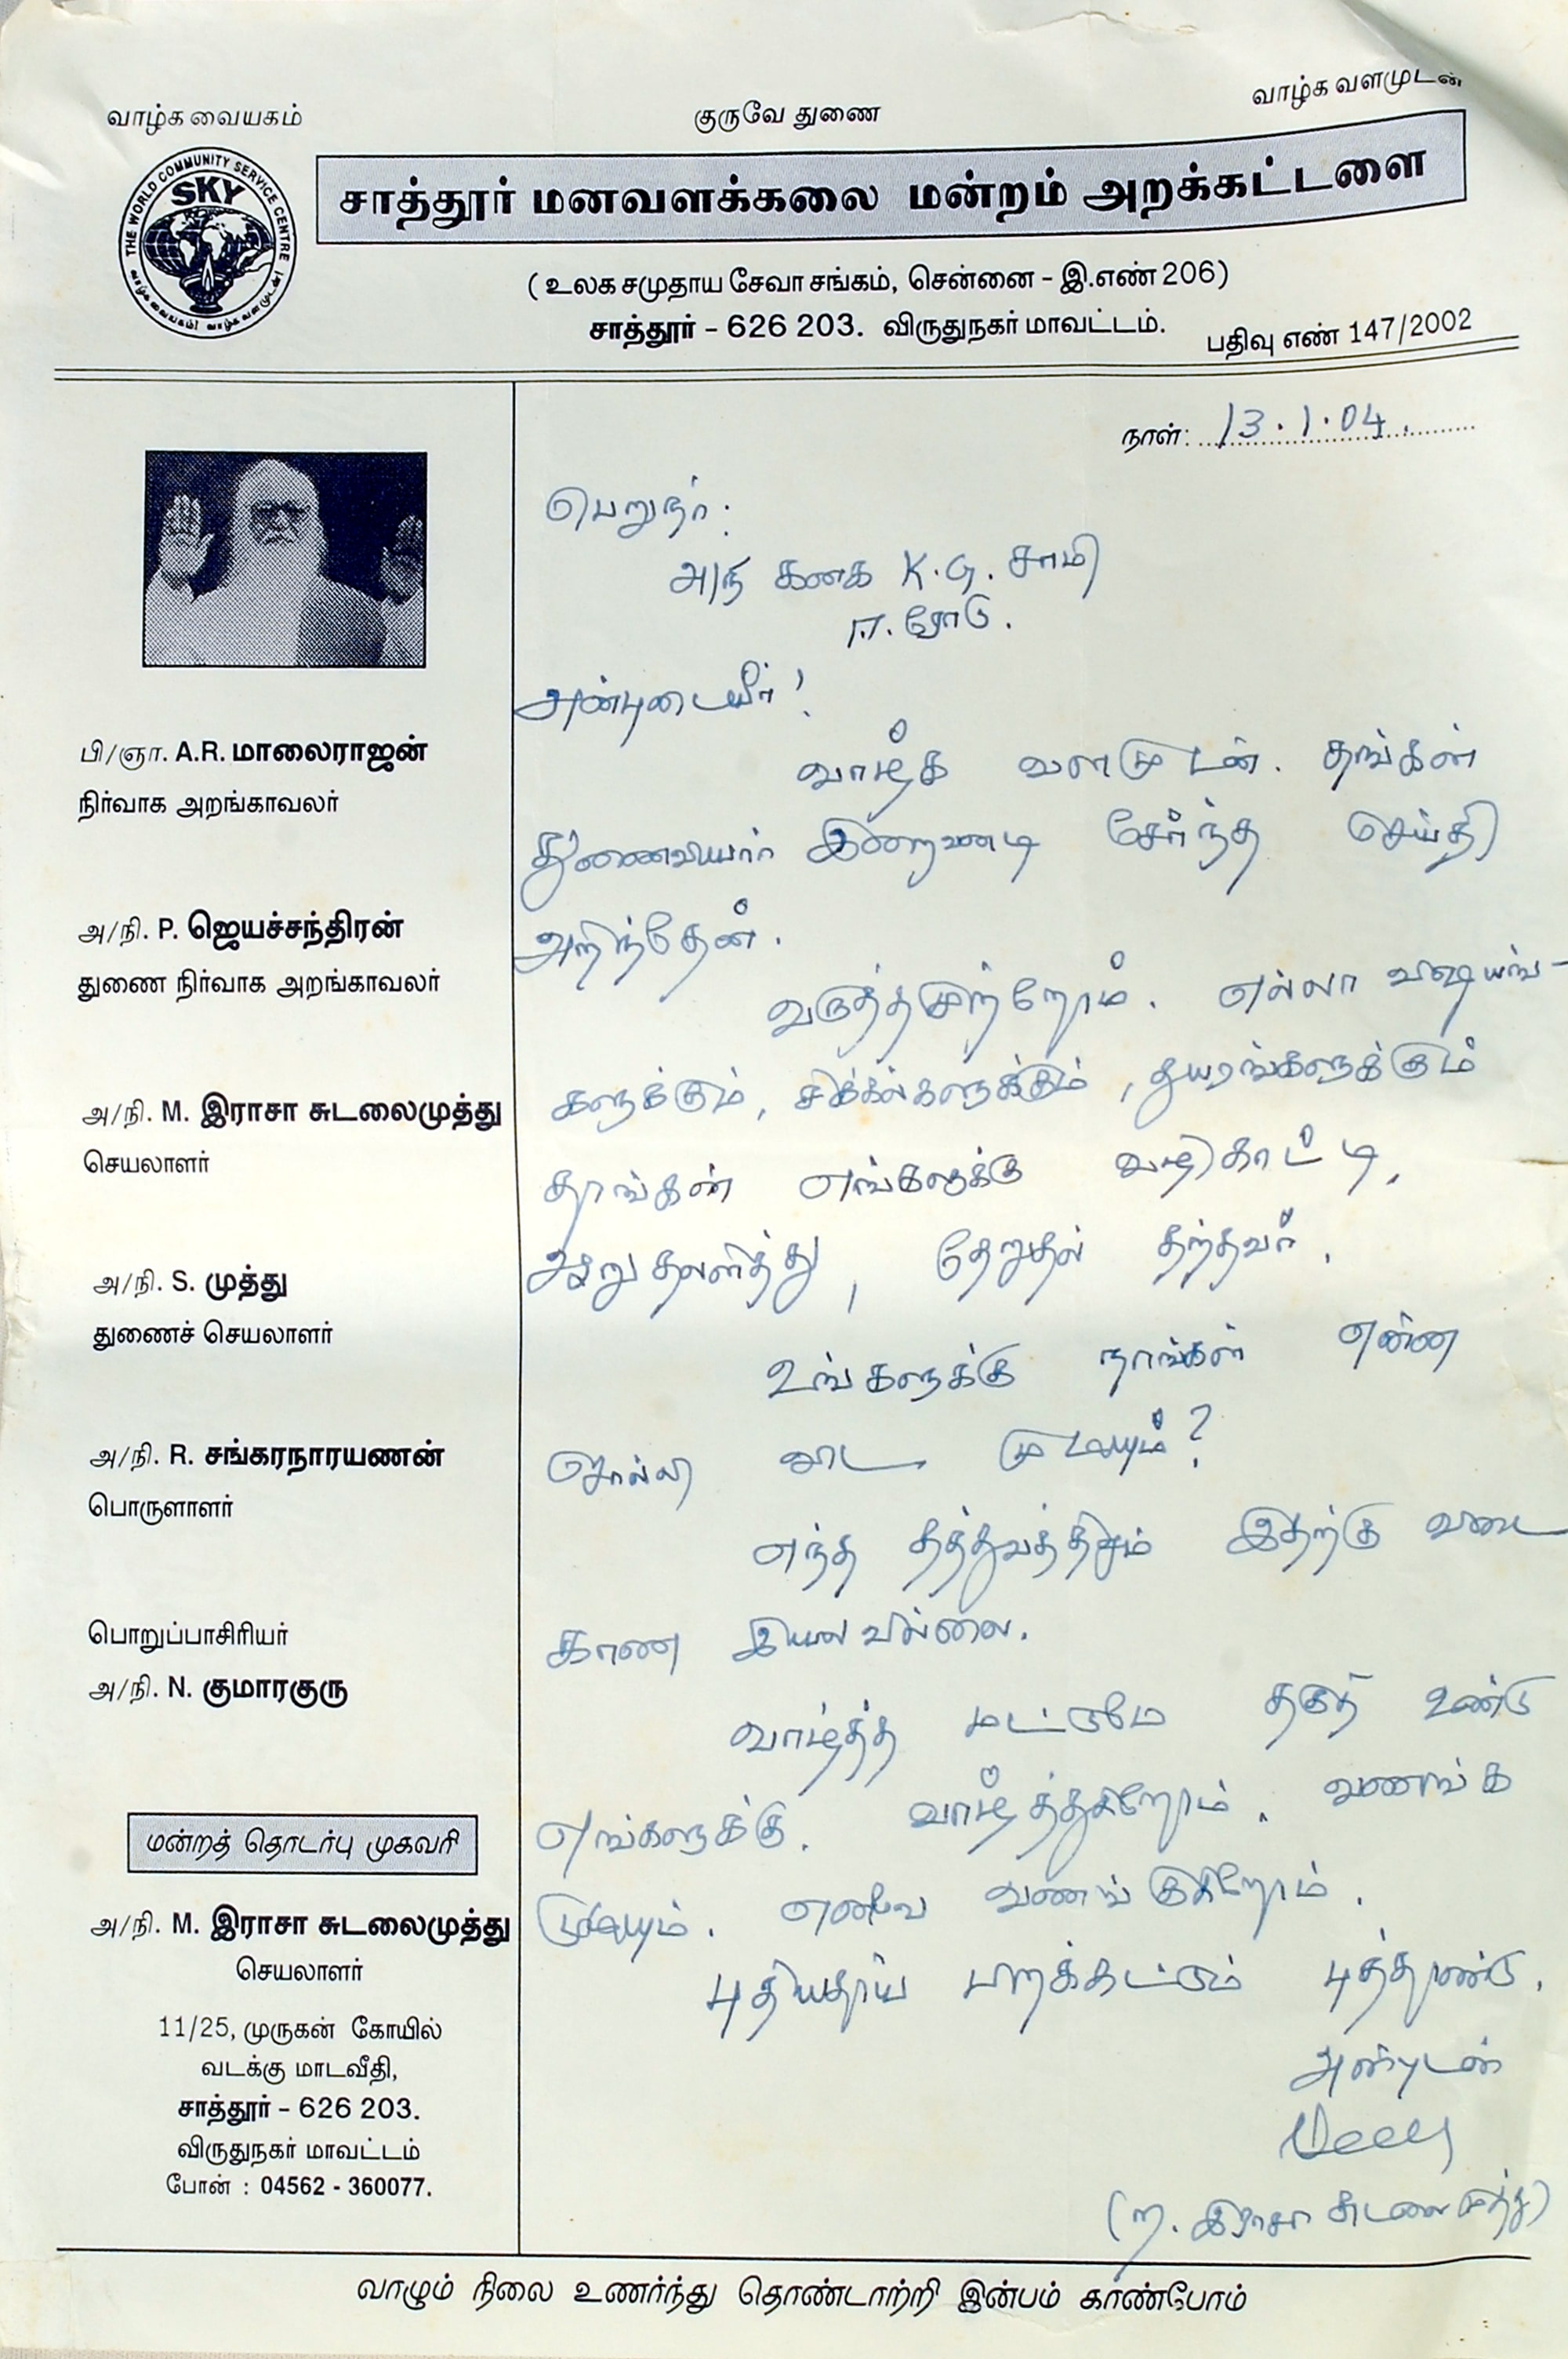 வாழ்க வையகம்
குருவே துணை
வாழ்க வளமுடன்
THE WORLD COMMUNITY SERVICE CENTRE
SKY
வாழ்க வையகம்! வாழ்க வளமுடன்!
சாத்தூர் மனவளக்கலை மன்றம் அறக்கட்டளை
( உலக சமுதாய சேவா சங்கம், சென்னை - இ.எண் 206)
சாத்தூர் - 626 203. விருதுநகர் மாவட்டம்.
பதிவு எண் 147/2002
பி/ஞா. A.R. மாலைராஜன்
நிர்வாக அறங்காவலர்
அ/நி. P. ஜெயச்சந்திரன்
துணை நிர்வாக அறங்காவலர்
அ/நி. M. இராசா சுடலைமுத்து
செயலாளர்
அ/நி. S. முத்து
துணைச் செயலாளர்
அ/நி. R. சங்கரநாராயணன்
பொருளாளர்
பொறுப்பாசிரியர்
அ/நி. N. குமாரகுரு
மன்றத் தொடர்பு முகவரி
அ/நி. M. இராசா சுடலைமுத்து
செயலாளர்
11/25, முருகன் கோயில்
வடக்கு மாடவீதி,
சாத்தூர் - 626 203.
விருதுநகர் மாவட்டம்
போன் : 04562 - 360077.
நாள்: 13.1.04.
பெறுநர்:
அ/நி கனக K.G. சாமி
ஈ.ரோடு.
அன்புடையீர்!
வாழ்க வளமுடன். தங்கள்
துணைவியார் இறைவனடி சேர்ந்த செய்தி
அறிந்தேன்.
வருத்தமுற்றோம். எல்லா விஷயங்-
களுக்கும், சிக்கல்களுக்கும், துயரங்களுக்கும்
தாங்கள் எங்களுக்கு வழிகாட்டி,
ஆறுதலளித்து, தேறுதல் தந்தவர்.
உங்களுக்கு நாங்கள் என்ன
சொல்லி விட முடியும்?
எந்த தத்துவத்திலும் இதற்கு விடை
காண இயலவில்லை.
வாழ்த்த மட்டுமே தகுதி உண்டு
எங்களுக்கு. வாழ்த்துகிறோம். வணங்க
முடியும். எனவே வணங்குகிறோம்.
புதியதாய் பிறக்கட்டும் புத்தாண்டு.
அன்புடன்
(ம. இராசா சுடலைமுத்து)
வாழும் நிலை உணர்ந்து தொண்டாற்றி இன்பம் காண்போம்